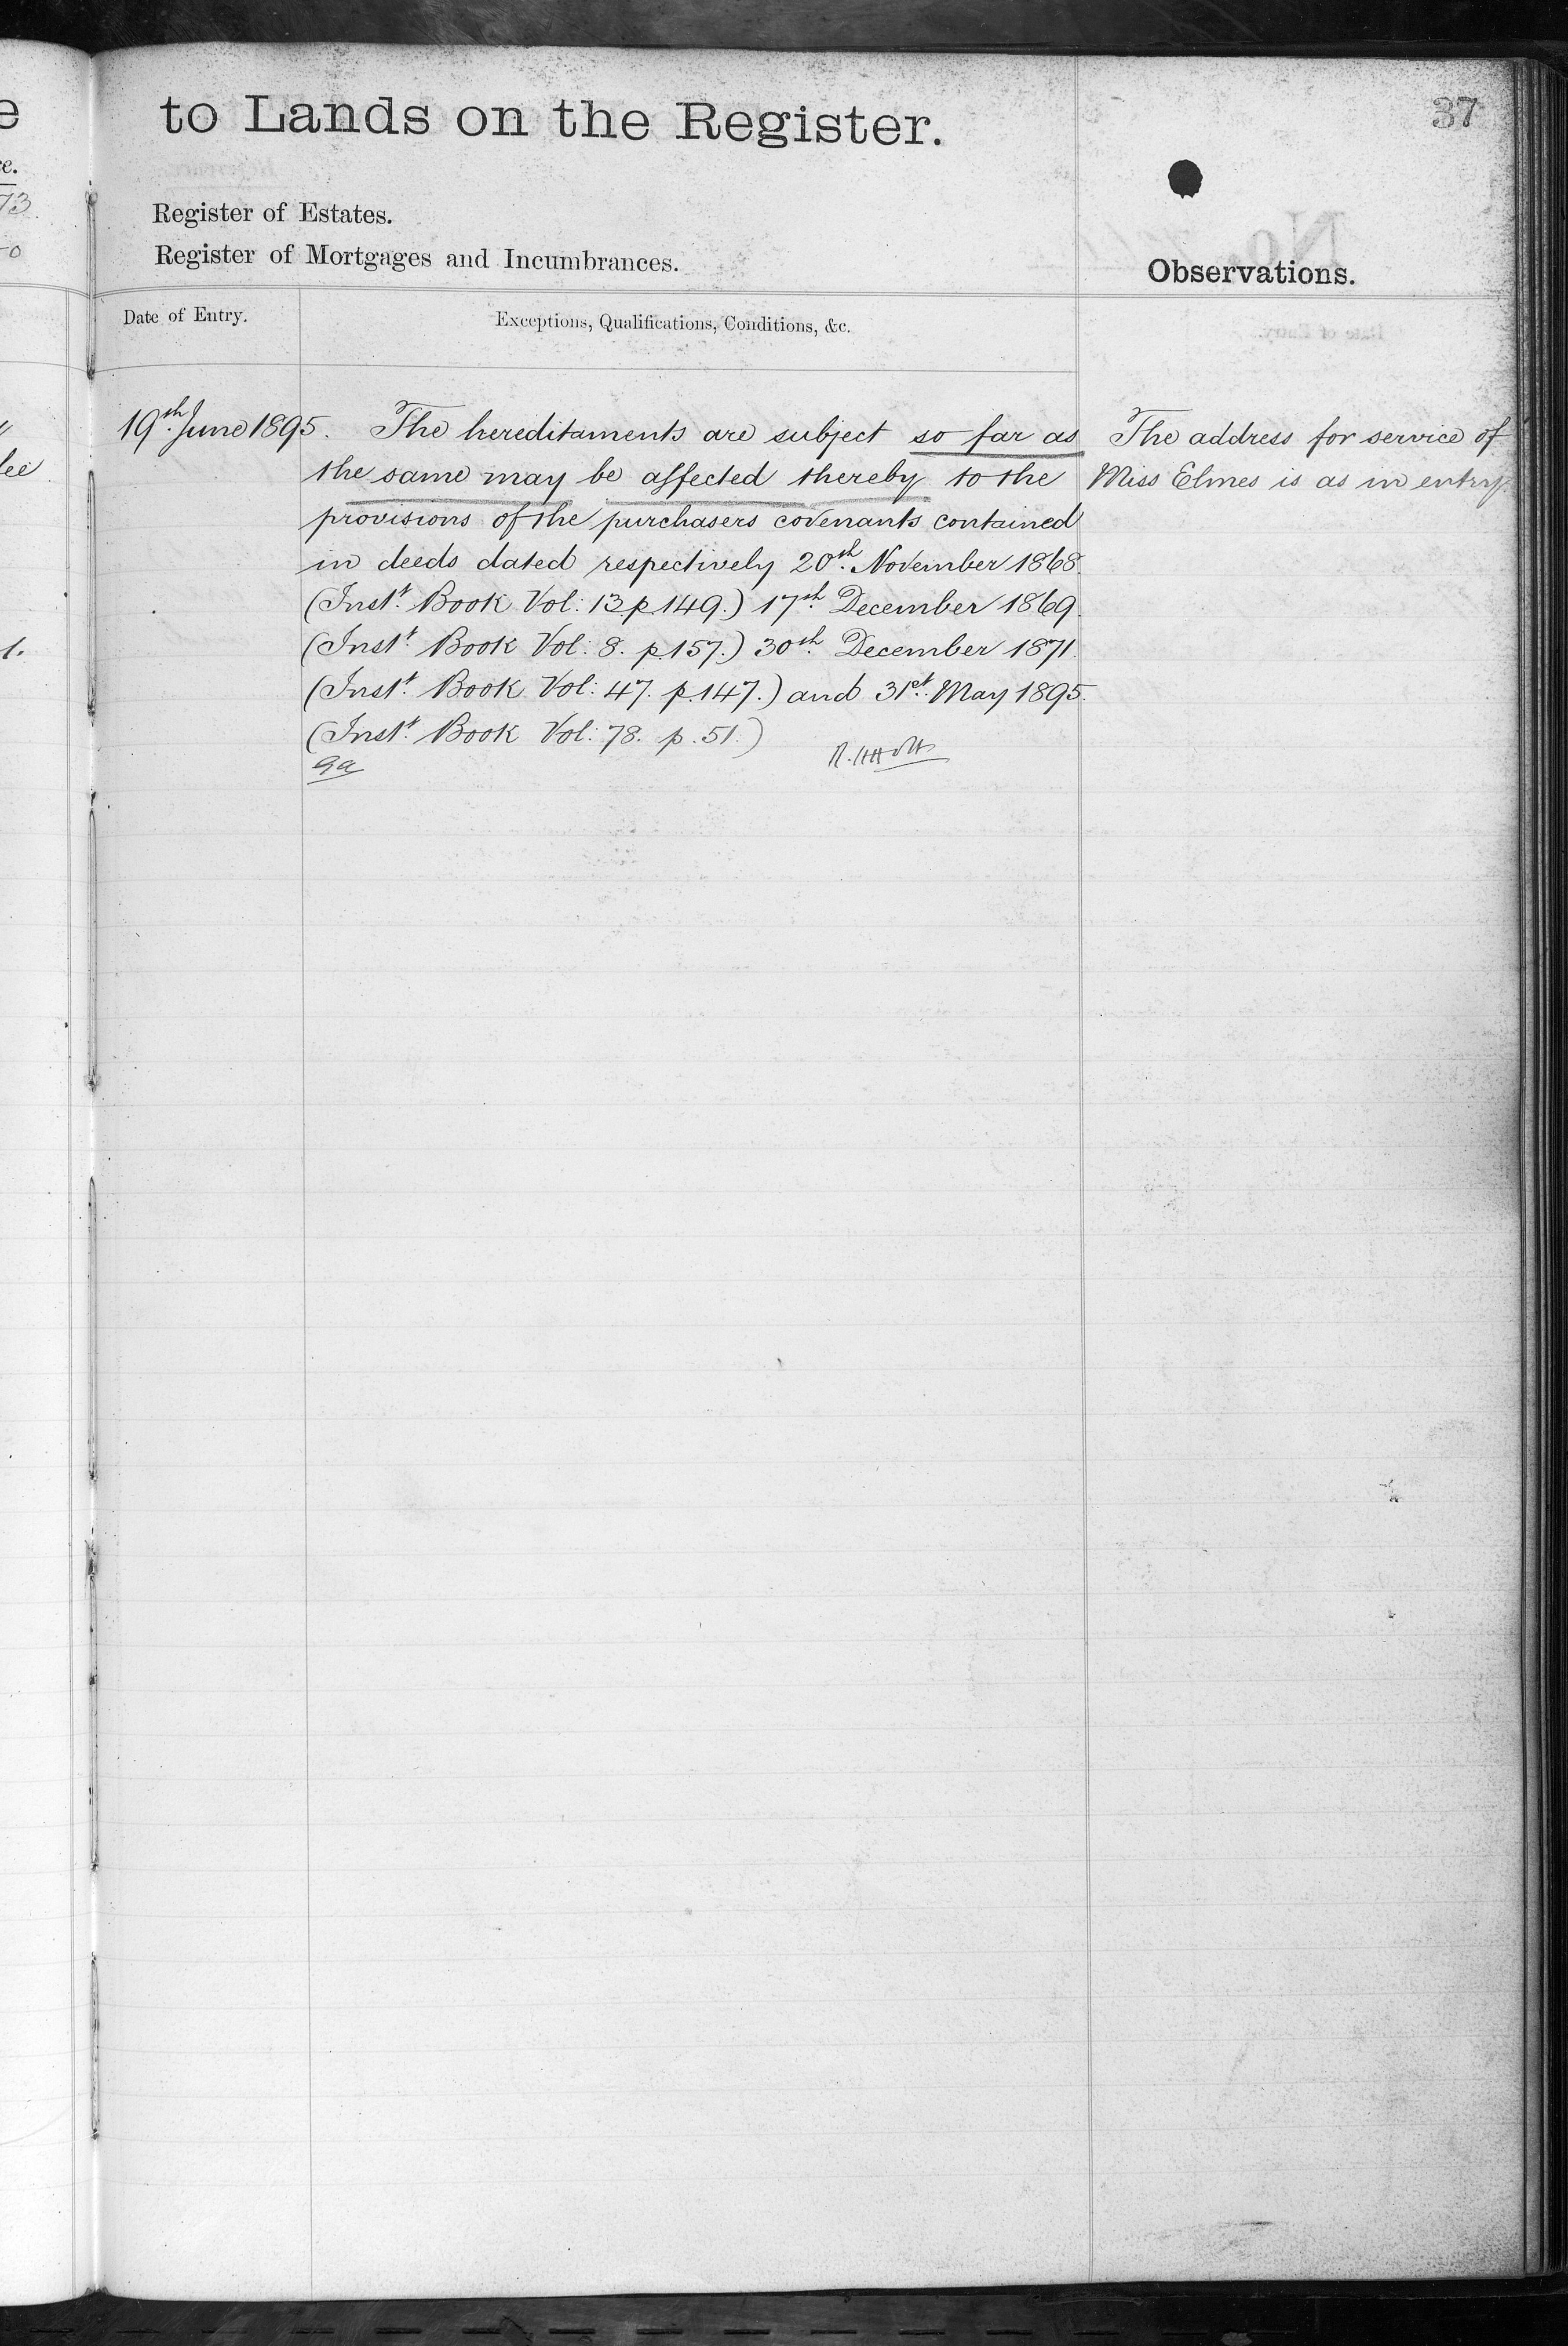 to Lands on the Register.
37
Register of Estates.
Register of Mortgages and Incumbrances.
Observations.
Date of Entry.
Exceptions, Qualifications, Conditions, &c.
19th June 1895.
The hereditaments are subject so far as
the same may be affected thereby to the
provisions of the purchasers covenants contained
in deeds dated respectively 20th November 1868.
(Instt Book Vol: 13 p.149.) 17th December 1869.
(Instt Book Vol: 8. p.157.) 30th December 1871.
(Instt Book Vol: 47. p.147.) and 31st May 1895.
(Instt Book Vol: 78. p.51.)
The address for service of
Miss Elmes is as in entry.